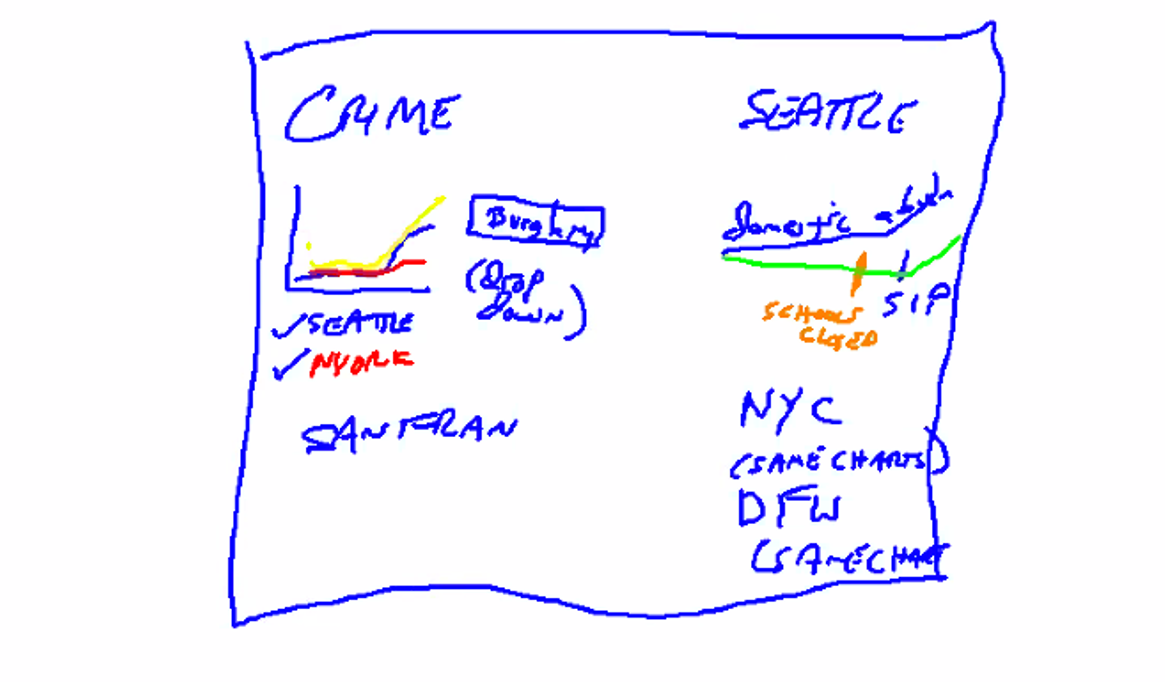 CRIME
Burglary
(DROP
DOWN)
SEATTLE
NYORK
SANFRAN
SEATTLE
Domestic
SCHOOLS
CLOSED
SIP
NYC
(SAME CHARTS)
DFW
(SAME CHART